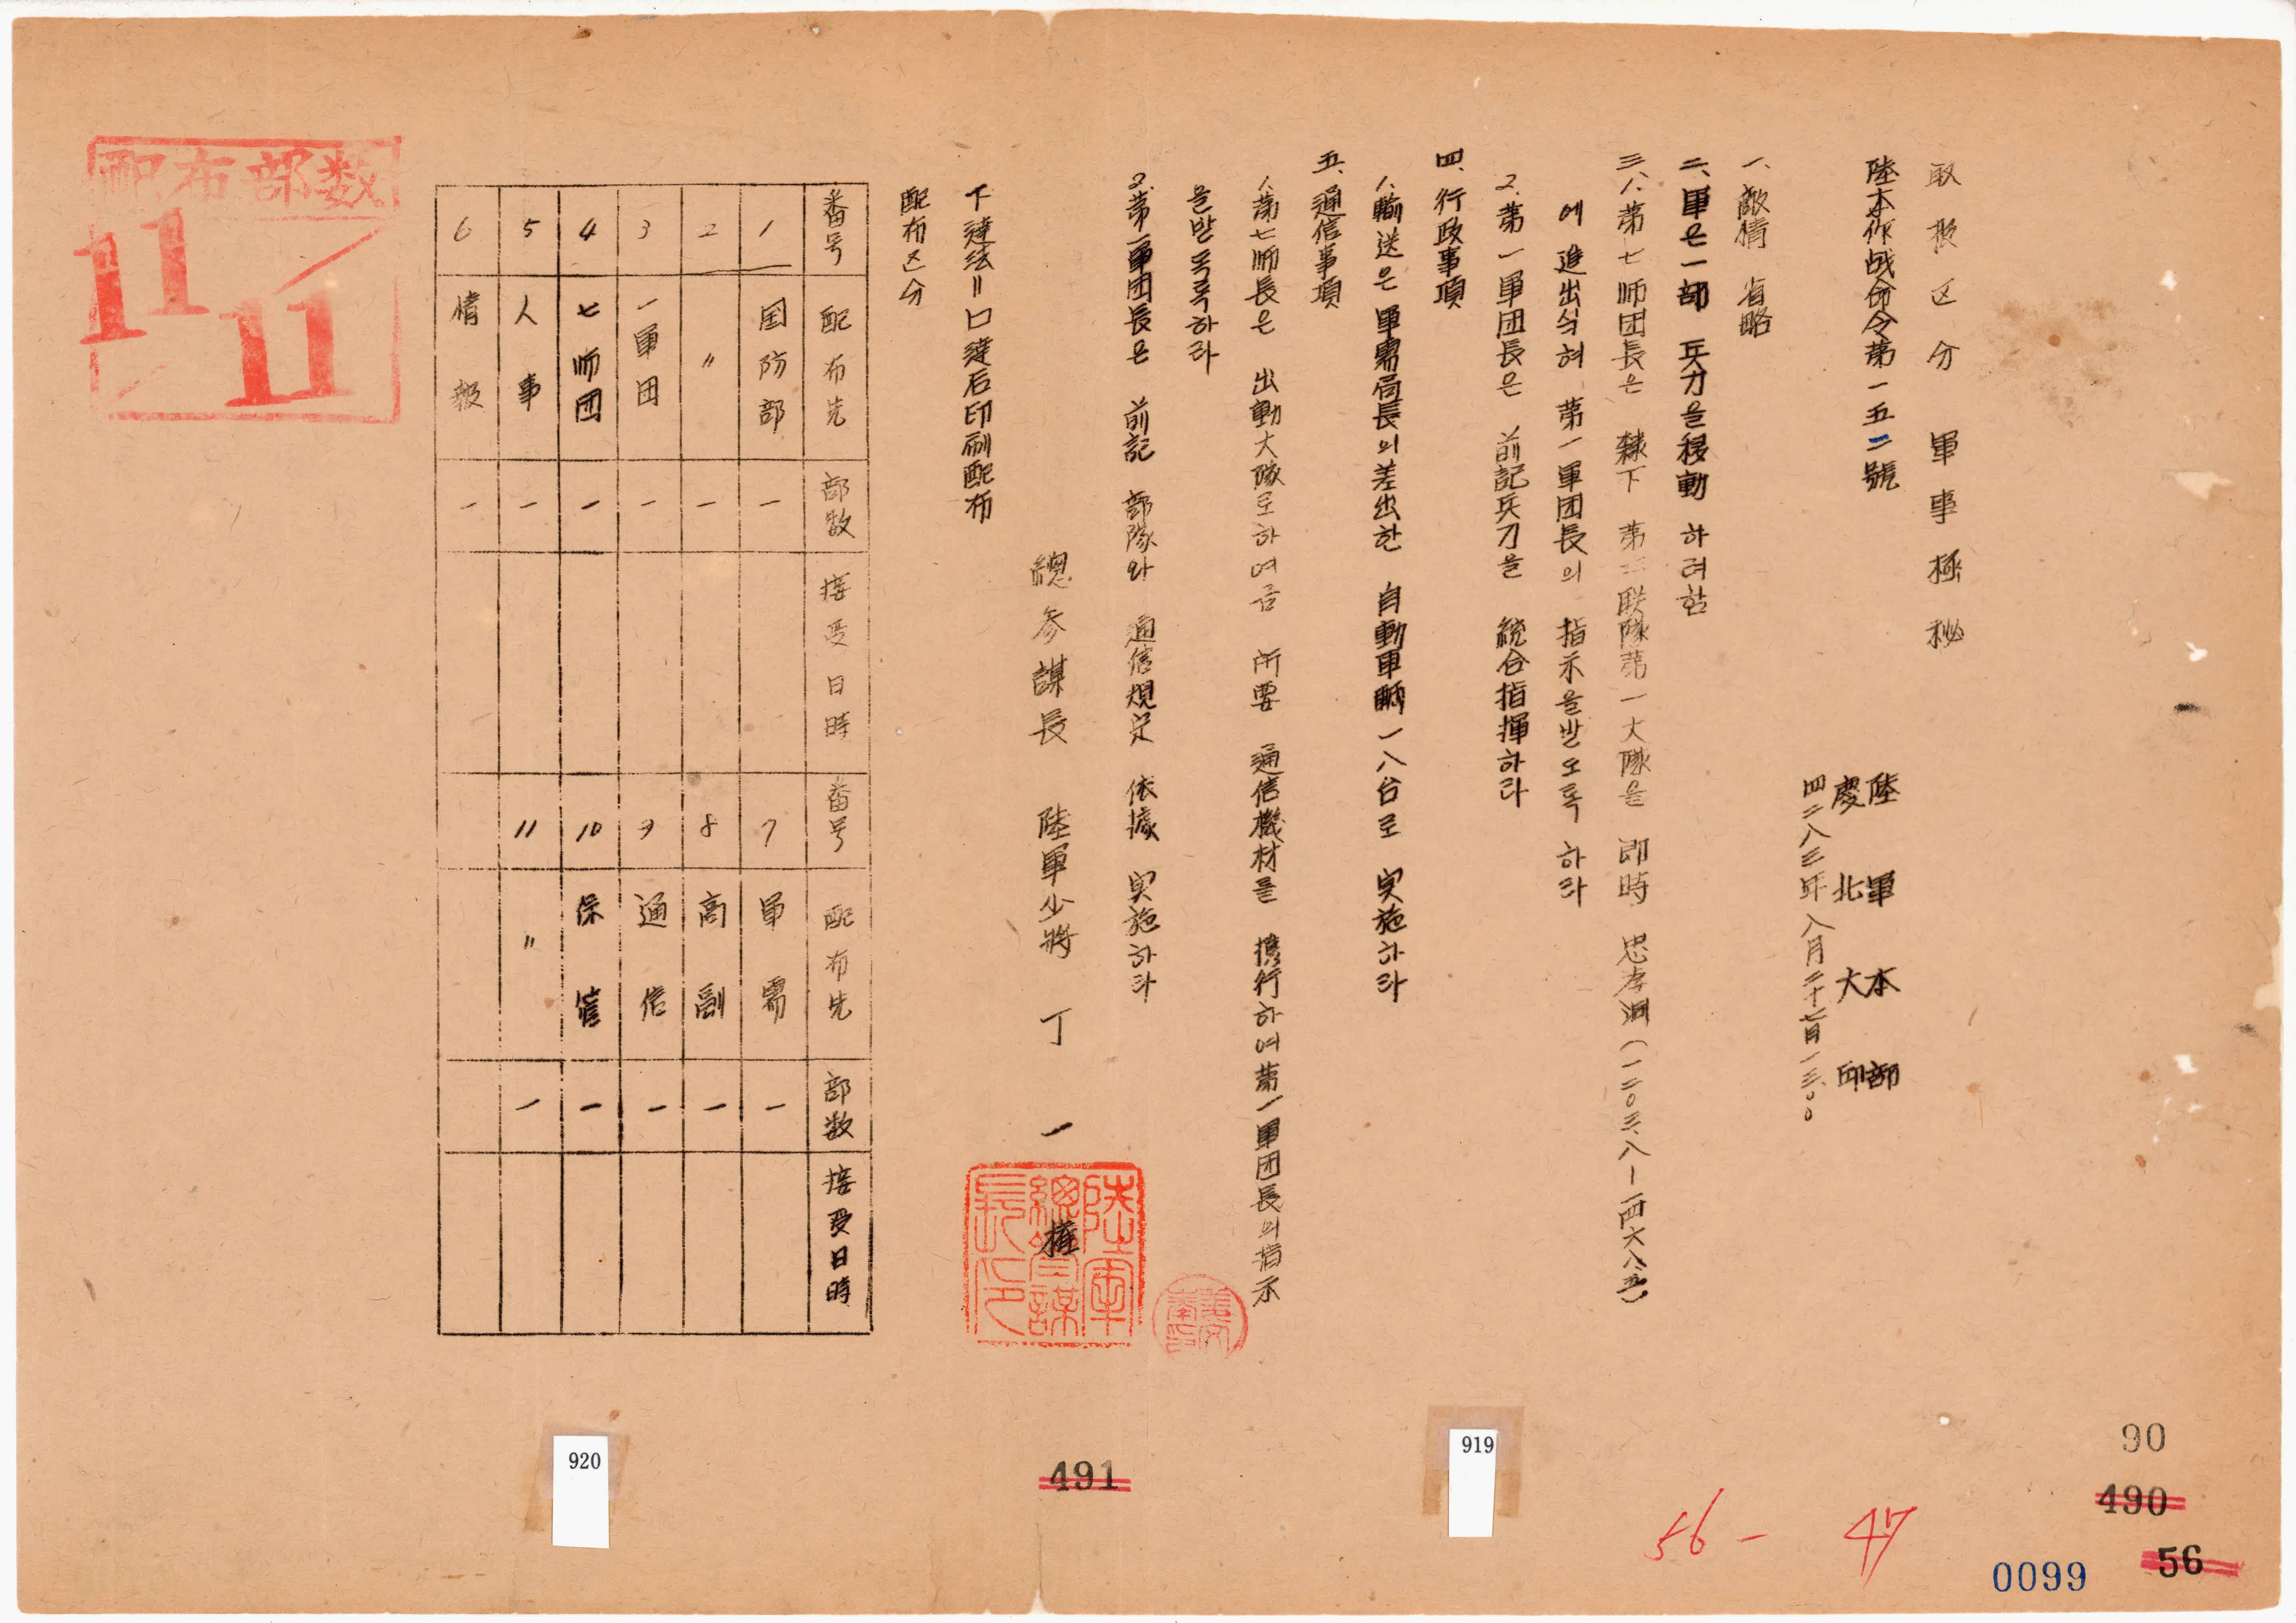 取扱区分 軍事極秘
陸本作战命令第一五二號
陸軍本部
慶北大邱
四二八三年八月二十七日一三、〇〇
一、敵情 省略
二、軍은 一部 兵力을 移動 하려함
三、1、第七师团長은 隸下 第三联隊第一大隊을 即時 忠孝洞(一二〇三、八―一四六八、五)
에 進出식혀 第一軍团長의 指示을받도록 하라
2、第一軍团長은 前記兵力을 統合指揮하라
四、行政事項
1、輸送은 軍需局長의差出한 自動車輌 一八台로 実施하라
五、通信事項
1、第七师長은 出動大隊로하여금 所要 通信機材를 携行하여第一軍团長의指示
을받도록하라
2、第一軍团長은 前記 部隊와 通信規定 依據 実施하라
總参謀長 陸軍少將 丁 一 權
陸軍總參謀長印
下達法=口達后印刷配布
配布区分
番号 配布先 部数 接受日時 番号 配布先 部数 接受日時
1 国防部 一 7 軍需 一
2 〃 一 8 高副 一
3 一軍团 一 9 通信 一
4 七师团 一 10 保管 一
5 人事 一 11 〃 一
6 情報 一
配布部数
11/11
920
491
919
90
490
56 - 47
0099
56